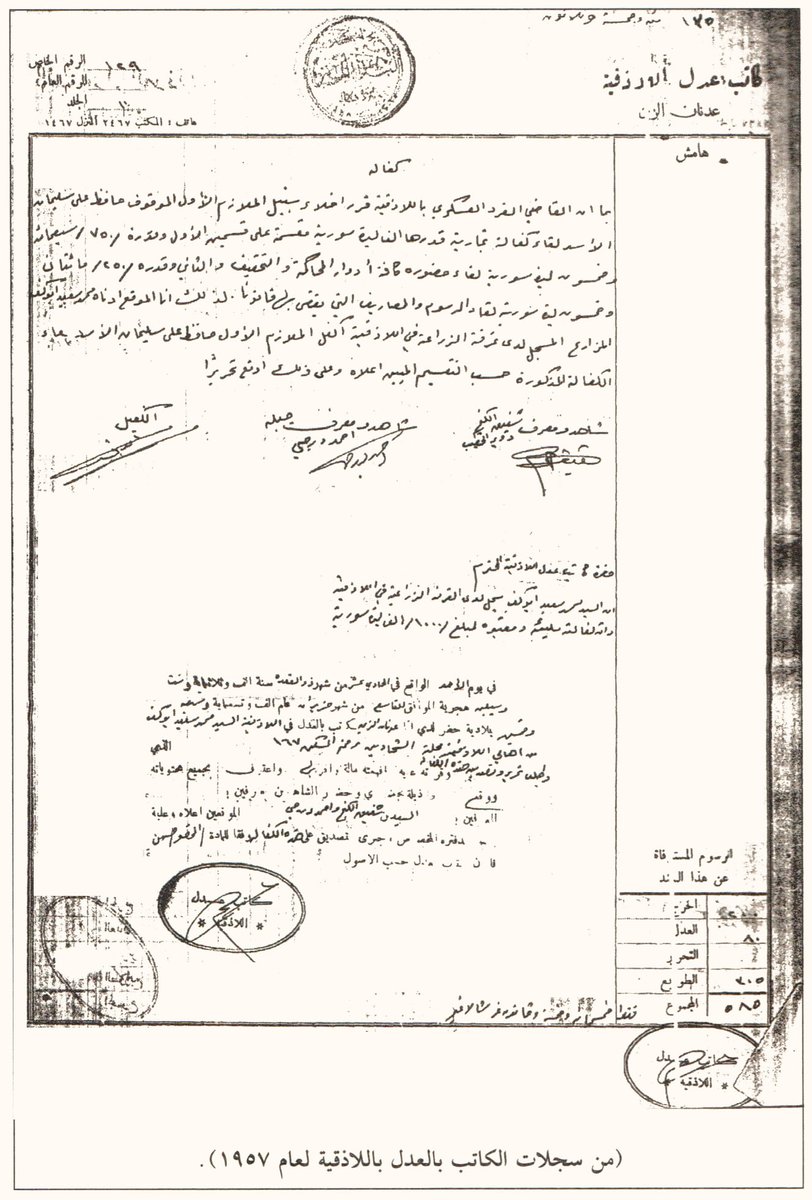 ١٣٥ مئة وخمسة وثلاثون
كاتب عدل اللاذقية
عدنان الزين
الرقم الخاص ١٢٩
الرقم العام
الجلد ١٠
هاتف : المكتب ٢٤٦٧ المنزل ١٤٦٧
هامش
كفالة
بما ان القاضي الفرد العسكري باللاذقية قرر اخلاء سبيل الملازم الأول الموقوف حافظ علي سليمان
الأسد لقاء كفالة تجارية قدرها الف ليرة سورية مقسمة على قسمين الأول وقدره /٧٥٠/ سبعمائة
وخمسون ليرة سورية لقاء حضوره كافة أدوار المحاكمة والتحقيق والثاني وقدره /٢٥٠/ مائتان
وخمسون ليرة سورية لقاء الرسوم والمصاريف التي يقضى بها قانونا. لذلك انا الموقع ادناه محمد سعيد ابو كف
المزارع المسجل لدى غرفة الزراعة في اللاذقية أكفل الملازم الأول حافظ علي سليمان الأسد بهذه
الكفالة المذكورة حسب التقسيم المبين اعلاه وعلى ذلك اوقع تحريرًا
شاهد ومعرف شفيق الكنج
شاهد ومعرف جبلة
احمد درجي
الكفيل
حضرة كاتب عدل اللاذقية المحترم
ان السيد محمد سعيد ابو كف مسجل لدى الغرفة الزراعية في اللاذقية
وان كفالته مليئة ومعتبرة لمبلغ /١٠٠٠/ الف ليرة سورية
في يوم الأحد الواقع في الحادي عشر من شهر ذو القعدة سنة الف وثلاثماية وست
وسبعين هجرية الموافق للتاسع من شهر حزيران عام الف وتسعماية وسبعة
وخمسين ميلادية حضر لدي انا عدنان الزين كاتب بالعدل في اللاذقية السيد محمد سعيد ابو كف
من اهالي اللاذقية محلة الشحادين رقم السكن ١٦٧
وطلب تحرير وتصديق هذه الكفالة
واعترف بجميع محتوياته
السيدين شفيق الكنج واحمد درجي الموقعين اعلاه وعليه
جرى تصديقي على هذه الكفالة وفقا للمادة
حسب الاصول
كاتب عدل
* اللاذقية *
الرسوم المستوفاة
عن هذا السند
الخزينة
العدل ٨٠
التحرير
الطوابع ٣٠٥
المجموع ٥٨٥
فقط خمسمائة وخمسة وثمانون قرشا لا غير
كاتب عدل
* اللاذقية *
(من سجلات الكاتب بالعدل باللاذقية لعام ١٩٥٧).